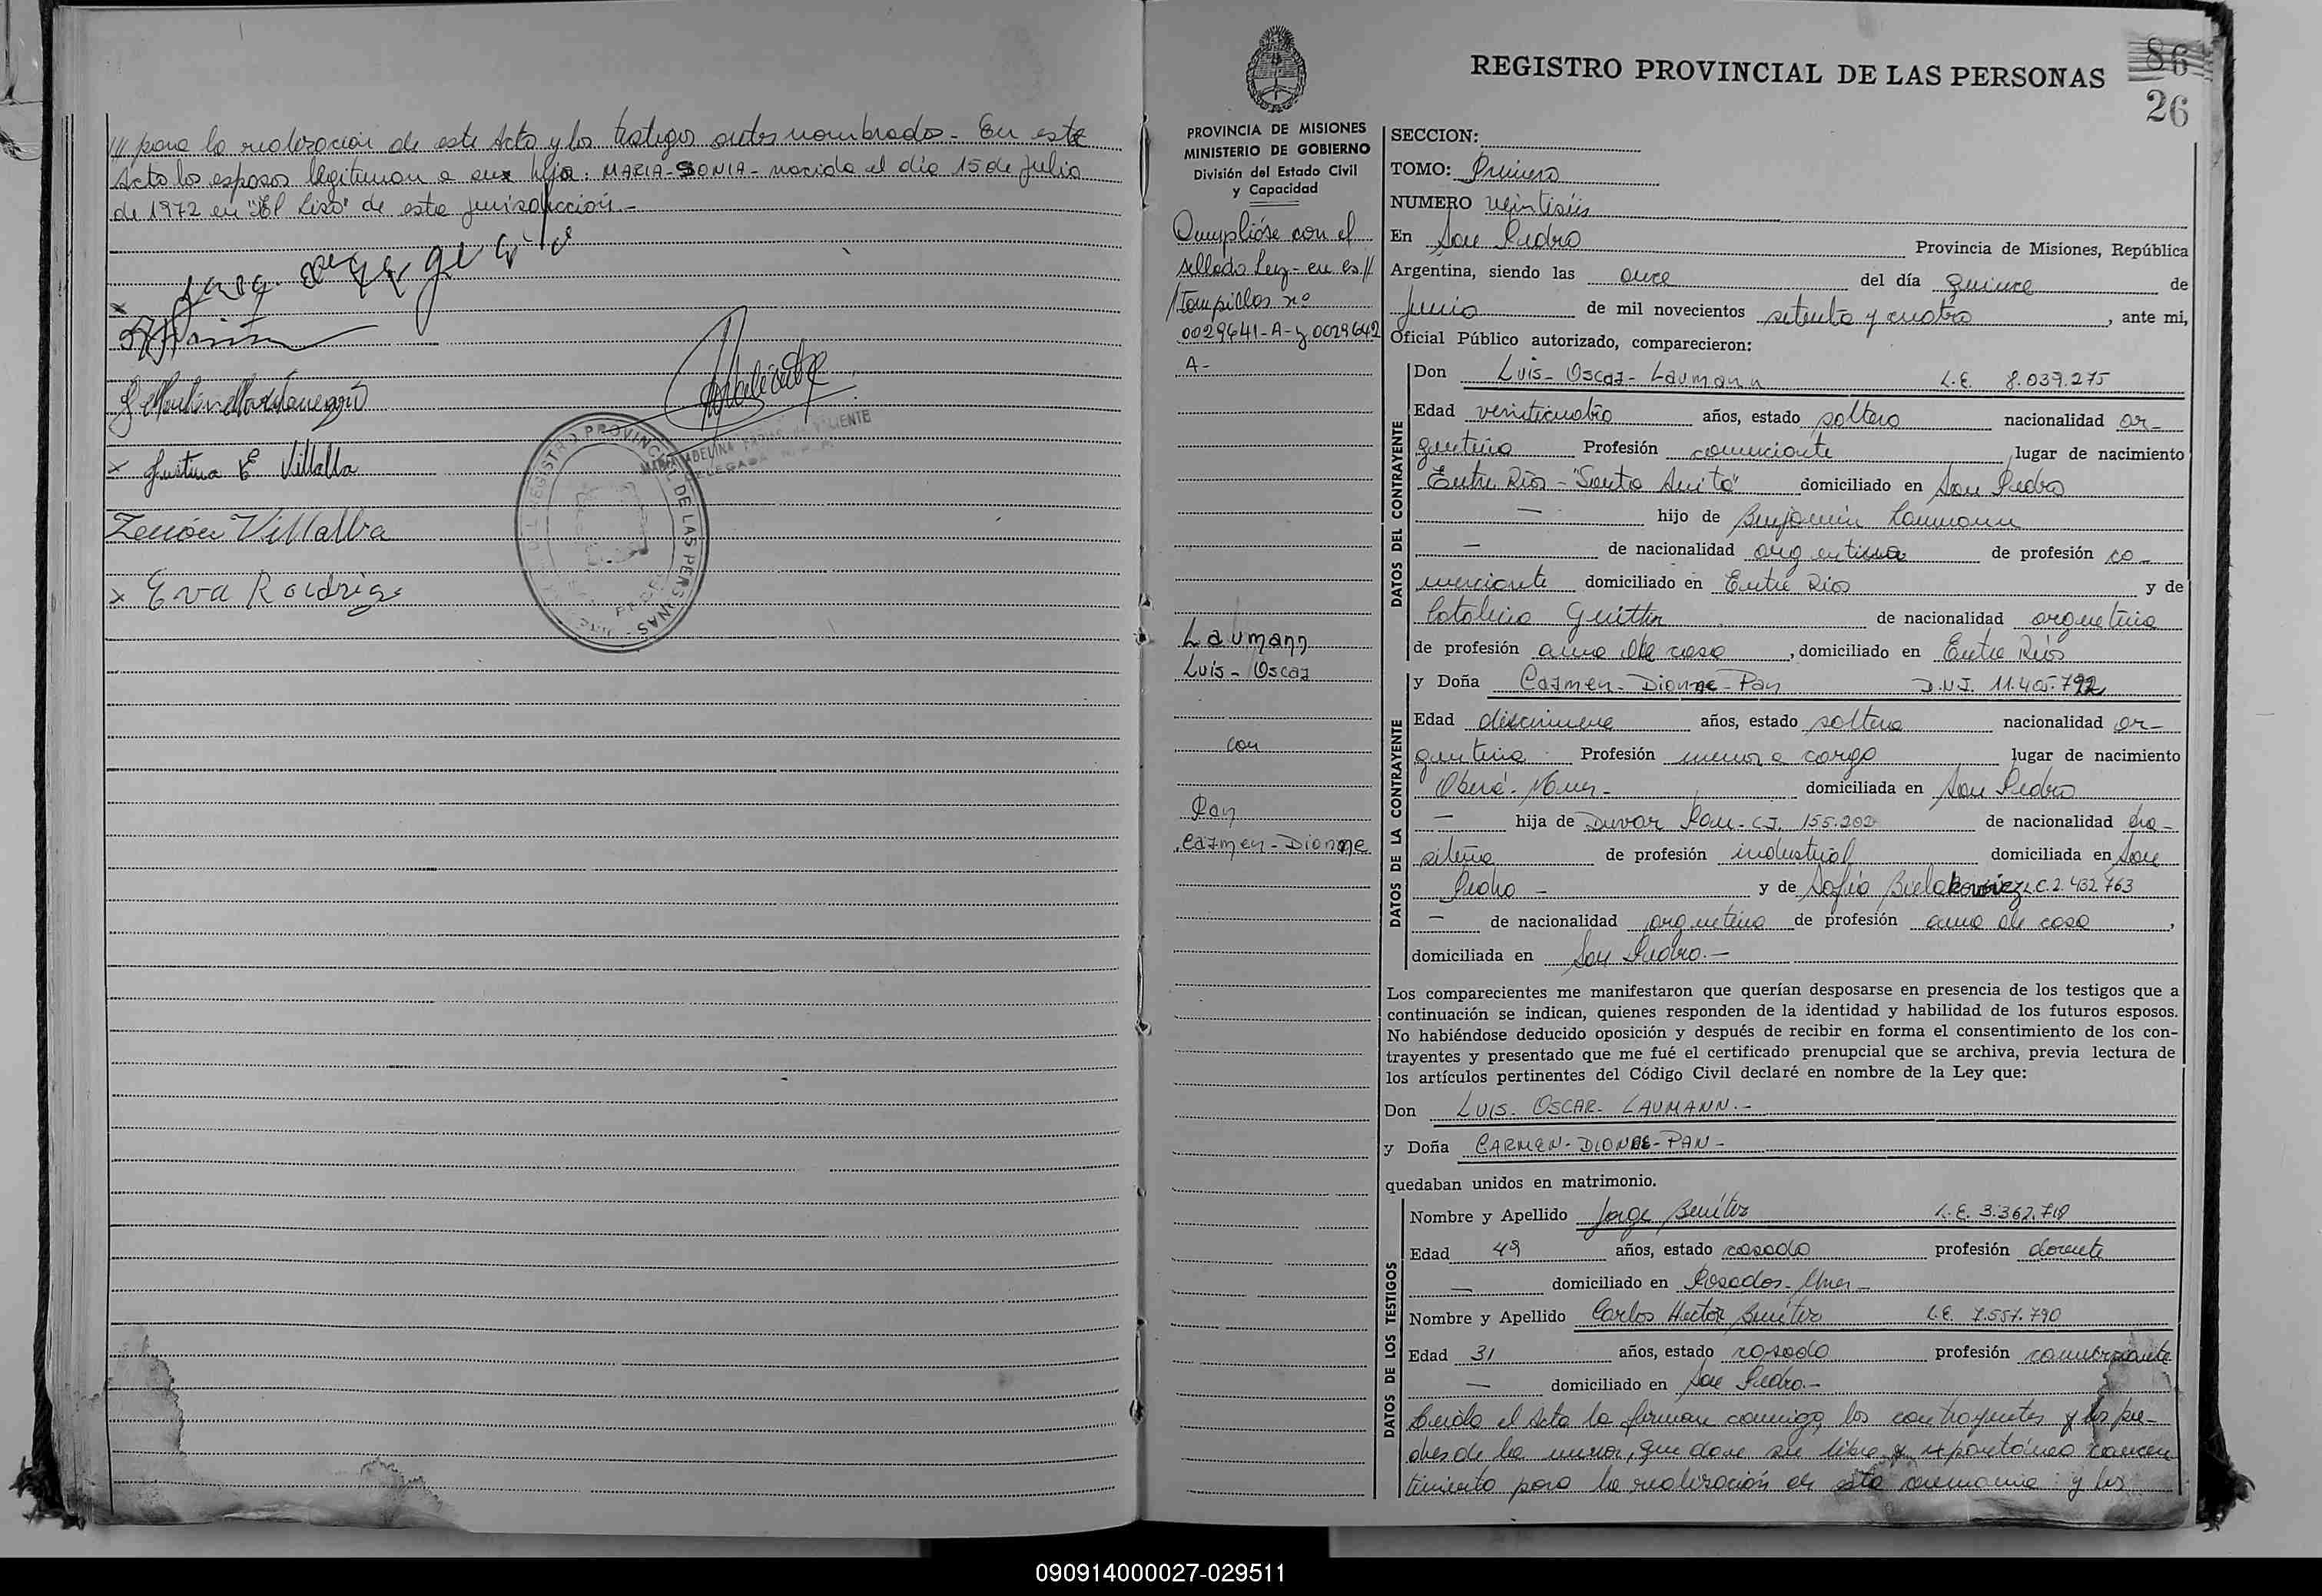 /// para la realización de este Acto y los testigos antes nombrados - En este
Acto los esposos legitiman a su hija: MARIA-SONIA- nacida el día 15 de julio
de 1972 en "El Liso" de esta jurisdicción.-
Justina E Villalba
Zenón Villalba
x Eva Rodrig
REGISTRO PROVINCIAL DE LAS PERSONAS
86
26
REGISTRO PROVINCIAL DE LAS PERSONAS
PROVINCIA DE MISIONES
MINISTERIO DE GOBIERNO
División del Estado Civil
y Capacidad
Cumplióse con el
sellado Ley - en es//
/tampillas nº
0029641-A-y 0029642
A-
Laumann
Luis - Oscar
con
Pan
Carmen - Dionne
SECCION:
TOMO: Primero
NUMERO veintiséis
En San Pedro Provincia de Misiones, República
Argentina, siendo las once del día quince de
Junio de mil novecientos setenta y cuatro, ante mi,
Oficial Público autorizado, comparecieron:
DATOS DEL CONTRAYENTE
Don Luis - Oscar - Laumann L.E. 8.039.275
Edad veinticuatro años, estado soltero nacionalidad ar-
gentina Profesión comerciante lugar de nacimiento
Entre Ríos - "Santa Anita" domiciliado en San Pedro
— hijo de Benjamín Laumann
— de nacionalidad argentina de profesión co-
merciante domiciliado en Entre Ríos y de
Catalina Guitther de nacionalidad argentina
de profesión ama de casa, domiciliado en Entre Ríos
DATOS DE LA CONTRAYENTE
y Doña Carmen - Dionne - Pan D.N.I. 11.405.792
Edad diecinueve años, estado soltera nacionalidad ar-
gentina Profesión menor a cargo lugar de nacimiento
Oberá - Mnes - domiciliada en San Pedro
— hija de Duvar Pan - C.I. 155.202 de nacionalidad bra-
sileña de profesión industrial domiciliada en San
Pedro - y de Sofía Bielakowicz L.C. 2.432.763
— de nacionalidad argentina de profesión ama de casa,
domiciliada en San Pedro.-
Los comparecientes me manifestaron que querían desposarse en presencia de los testigos que a
continuación se indican, quienes responden de la identidad y habilidad de los futuros esposos.
No habiéndose deducido oposición y después de recibir en forma el consentimiento de los con-
trayentes y presentado que me fué el certificado prenupcial que se archiva, previa lectura de
los artículos pertinentes del Código Civil declaré en nombre de la Ley que:
Don LUIS - OSCAR - LAUMANN.-
y Doña CARMEN - DIONNE - PAN -
quedaban unidos en matrimonio.
DATOS DE LOS TESTIGOS
Nombre y Apellido Jorge Benítez L.E. 3.362.718
Edad 49 años, estado casado profesión docente
— domiciliado en Posadas - Mnes -
Nombre y Apellido Carlos Hector Benítez L.E. 7.557.790
Edad 31 años, estado casado profesión comerciante
— domiciliado en San Pedro.-
Leída el Acta la firman conmigo, los contrayentes y los pa-
dres de la menor, que dan su libre y espontáneo consen
timiento para la realización de esta ceremonia: y los
090914000027-029511